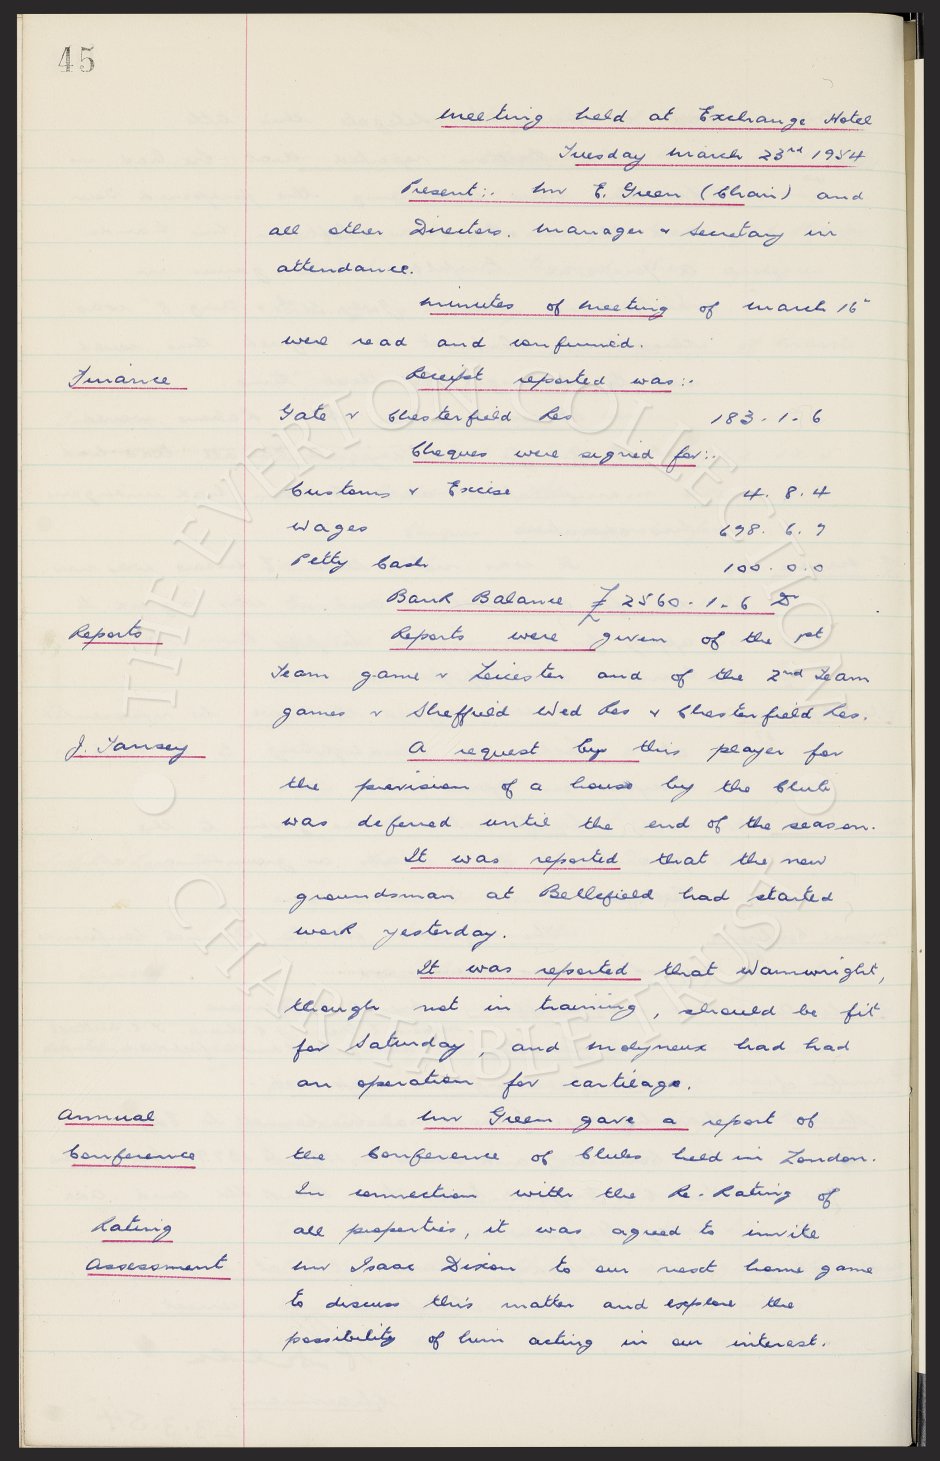 45
Meeting held at Exchange Hotel
Tuesday March 23rd 1954
Present:- Mr E. Green (Chair) and
all other Directors. Manager & Secretary in
attendance.
Minutes of Meeting of March 16"
were read and confirmed.
Finance
Receipt reported was:-
Gate v Chesterfield Res 183. 1. 6
Cheques were signed for:-
Customs & Excise 4. 8. 4
Wages 698. 6. 7
Petty Cash 100. 0. 0
Bank Balance £2560. 1. 6 Dr
Reports
Reports were given of the 1st
Team game v Leicester and of the 2nd Team
games v Sheffield Wed Res & Chesterfield Res.
J. Tansey
A request by this player for
the provision of a house by the Club
was deferred until the end of the season.
It was reported that the new
groundsman at Bellefield had started
work yesterday.
It was reported that Wainwright,
though not in training, should be fit
for Saturday, and Molyneux had had
an operation for cartilage.
Annual
Conference
Mr Green gave a report of
the Conference of Clubs held in London.
In connection with the Re-Rating of
Rating
Assessment
all properties, it was agreed to invite
Mr Isaac Dixon to our next home game
to discuss this matter and explore the
possibility of him acting in our interest.
THE EVERTON COLLECTION
CHARITABLE TRUST